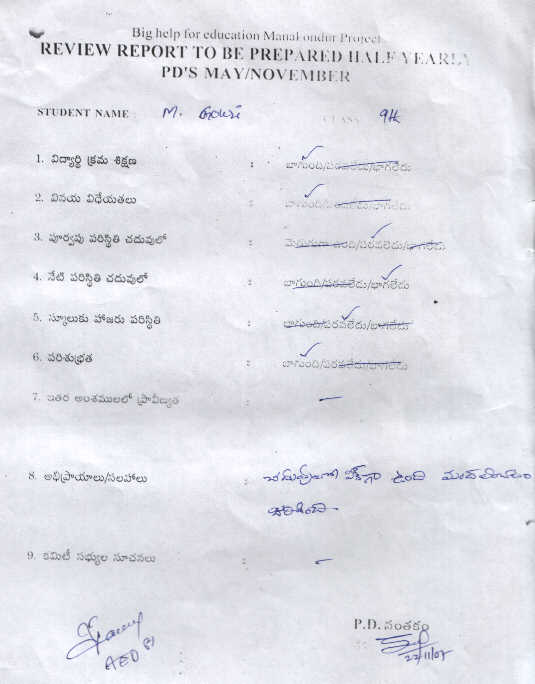 Big help for education Manakondur Project
REVIEW REPORT TO BE PREPARED HALF YEARLY
PD'S MAY/NOVEMBER
STUDENT NAME : M. Gouri CLASS 9th
1. విద్యార్థి క్రమ శిక్షణ : బాగుంది/పరవలేదు/బాగలేదు
2. వినయ విధేయతలు : బాగుంది/పరవలేదు/బాగలేదు
3. పూర్వపు పరిస్థితి చదువులో : మెరుగుగా ఉంది/పరవలేదు/బాగలేదు
4. నేటి పరిస్థితి చదువులో : బాగుంది/పరవలేదు/బాగలేదు
5. స్కూలుకు హాజరు పరిస్థితి : బాగుంది/పరవలేదు/బాగలేదు
6. పరిశుభ్రత : బాగుంది/పరవలేదు/బాగలేదు
7. ఇతర అంశములలో ప్రావీణ్యత : –
8. అభిప్రాయాలు/సలహాలు : వీక్‌గా ఉంది
9. కమిటీ సభ్యుల సూచనలు : –
P.D. సంతకం